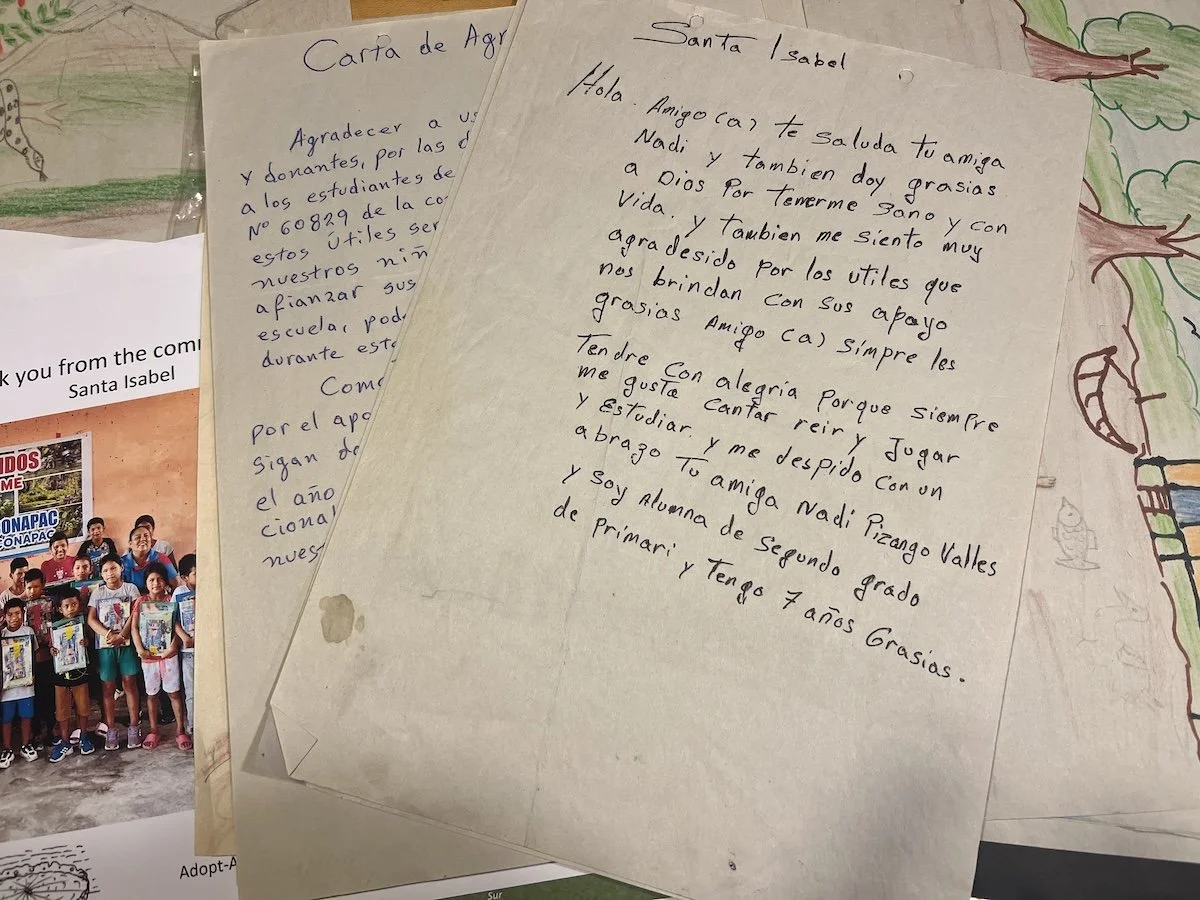 Carta de Agr
Agradecer a us
y donantes, por las d
a los estudiantes de
Nº 60829 de la co
estos útiles ser
nuestros niñ
afianzar sus
escuela, pod
durante est
Como
por el apo
sigan de
el año
cional
nues
Santa Isabel
Hola. Amigo (a) te saluda tu amiga
Nadi y tambien doy grasias
a Dios por tenerme sano y con
Vida. y tambien me siento muy
agradesido por los utiles que
nos brindan con sus apoyo
grasias Amigo (a) simpre les
Tendre con alegría porque siempre
me gusta cantar reir y Jugar
y Estudiar. y me despido con un
abrazo Tu amiga Nadi Pizango Valles
y soy Alumna de segundo grado
de primari y Tengo 7 años Grasias.
k you from the com
Santa Isabel
IDOS
ME
ONAPAC
CONAPAC
Adopt-A
Sur